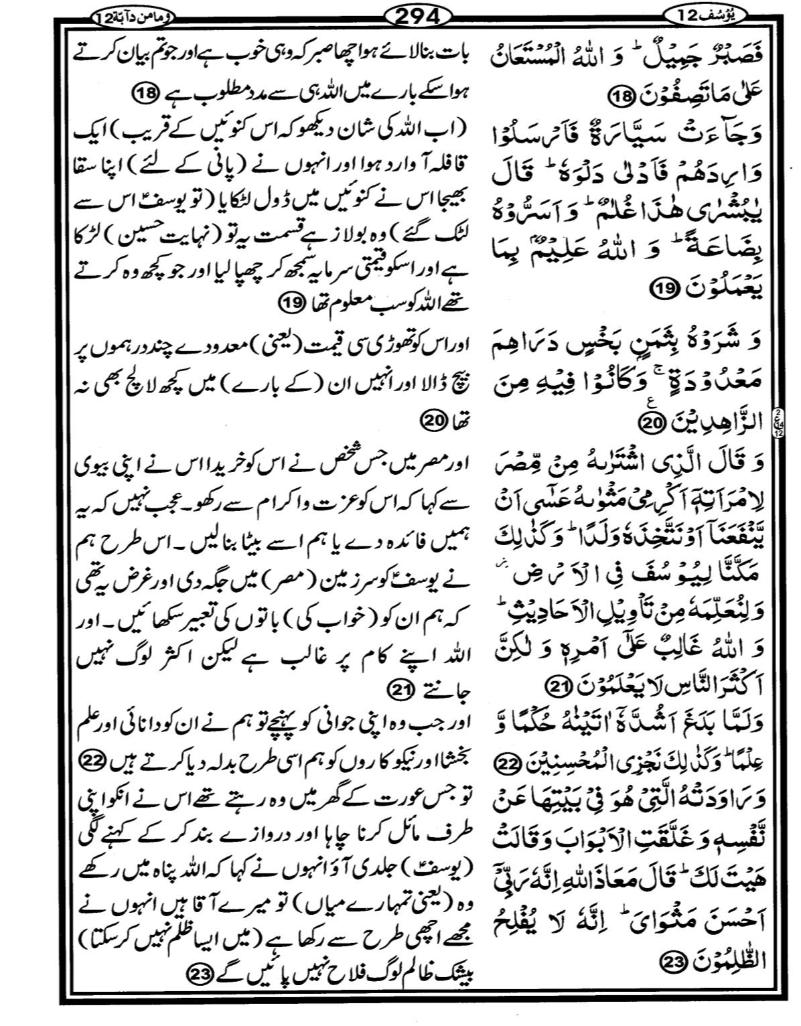 يُوسُف 12
294
وَمَا مِن دَآبَّة 12
فَصَبْرٌ جَمِيْلٌ ؕ وَ اللّٰهُ الْمُسْتَعَانُ
عَلٰى مَا تَصِفُوْنَ 18
وَ جَآءَتْ سَيَّارَةٌ فَاَرْسَلُوْا
وَارِدَهُمْ فَاَدْلٰى دَلْوَهٗ ؕ قَالَ
يٰبُشْرٰى هٰذَا غُلٰمٌ ؕ وَ اَسَرُّوْهُ
بِضَاعَةً ؕ وَ اللّٰهُ عَلِيْمٌۢ بِمَا
يَعْمَلُوْنَ 19
وَ شَرَوْهُ بِثَمَنٍۭ بَخْسٍ دَرَاهِمَ
مَعْدُوْدَةٍ ۚ وَ كَانُوْا فِيْهِ مِنَ
الزَّاهِدِيْنَ 20 ع
وَ قَالَ الَّذِى اشْتَرٰىهُ مِنْ مِّصْرَ
لِامْرَاَتِهٖۤ اَكْرِمِىْ مَثْوٰىهُ عَسٰٓى اَنْ
يَّنْفَعَنَاۤ اَوْ نَتَّخِذَهٗ وَلَدًا ؕ وَ كَذٰلِكَ
مَكَّنَّا لِيُوْسُفَ فِى الْاَرْضِ
وَ لِنُعَلِّمَهٗ مِنْ تَاْوِيْلِ الْاَحَادِيْثِ ؕ
وَ اللّٰهُ غَالِبٌ عَلٰٓى اَمْرِهٖ وَ لٰكِنَّ
اَكْثَرَ النَّاسِ لَا يَعْلَمُوْنَ 21
وَ لَمَّا بَلَغَ اَشُدَّهٗۤ اٰتَيْنٰهُ حُكْمًا وَّ
عِلْمًا ؕ وَ كَذٰلِكَ نَجْزِى الْمُحْسِنِيْنَ 22
وَ رَاوَدَتْهُ الَّتِىْ هُوَ فِىْ بَيْتِهَا عَنْ
نَّفْسِهٖ وَ غَلَّقَتِ الْاَبْوَابَ وَ قَالَتْ
هَيْتَ لَكَ ؕ قَالَ مَعَاذَ اللّٰهِ اِنَّهٗ رَبِّىْۤ
اَحْسَنَ مَثْوَاىَ ؕ اِنَّهٗ لَا يُفْلِحُ
الظّٰلِمُوْنَ 23
بات بنا لائے ہو اچھا صبر کہ وہی خوب ہے اور جو تم بیان کرتے
ہو اسکے بارے میں اللہ ہی سے مدد مطلوب ہے 18
(اب اللہ کی شان دیکھو کہ اس کنوئیں کے قریب) ایک
قافلہ آوارد ہوا اور انہوں نے (پانی کے لئے) اپنا سقا
بھیجا اس نے کنوئیں میں ڈول لٹکایا (تو یوسفؑ اس سے
لٹک گئے) وہ بولا زہے قسمت یہ تو (نہایت حسین) لڑکا
ہے اور اسکو قیمتی سرمایہ سمجھ کر چھپا لیا اور جو کچھ وہ کرتے
تھے اللہ کو سب معلوم تھا 19
اور اس کو تھوڑی سی قیمت (یعنی) معدودے چند درہموں پر
بیچ ڈالا اور انہیں ان (کے بارے) میں کچھ لالچ بھی نہ
تھا 20
اور مصر میں جس شخص نے اس کو خریدا اس نے اپنی بیوی
سے کہا کہ اس کو عزت و اکرام سے رکھو۔ عجب نہیں کہ یہ
ہمیں فائدہ دے یا ہم اسے بیٹا بنالیں۔ اس طرح ہم
نے یوسفؑ کو سرزمین (مصر) میں جگہ دی اور غرض یہ تھی
کہ ہم ان کو (خواب کی) باتوں کی تعبیر سکھائیں۔ اور
اللہ اپنے کام پر غالب ہے لیکن اکثر لوگ نہیں
جانتے 21
اور جب وہ اپنی جوانی کو پہنچے تو ہم نے ان کو دانائی اور علم
بخشا اور نیکوکاروں کو ہم اسی طرح بدلہ دیا کرتے ہیں 22
تو جس عورت کے گھر میں وہ رہتے تھے اس نے انکو اپنی
طرف مائل کرنا چاہا اور دروازے بند کر کے کہنے لگی
(یوسفؑ) جلدی آؤ انہوں نے کہا کہ اللہ پناہ میں رکھے
وہ (یعنی تمہارے میاں) تو میرے آقا ہیں انہوں نے
مجھے اچھی طرح سے رکھا ہے (میں ایسا ظلم نہیں کر سکتا)
بیشک ظالم لوگ فلاح نہیں پائیں گے 23